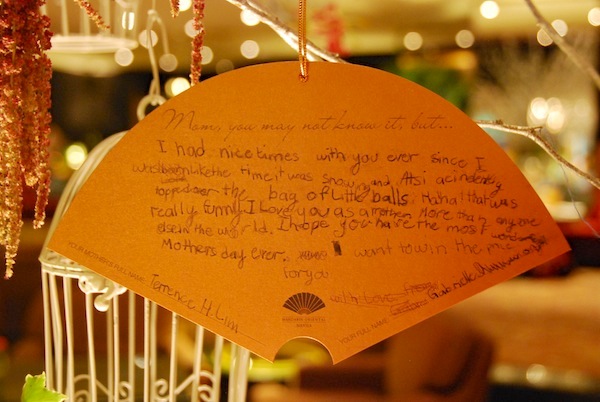 Mom, you may not know it, but...
I had nice times with you ever since I
was born like the time it was snowing and Atsi acindently
topped over the bag of little balls. Haha! that was
really funny. I Love you as a mother more than anyone
else in the world. I hope you have the most
Mothers day ever. I want to win the
for you
with love
YOUR MOTHER'S FULL NAME
Terrence H. Lim
YOUR FULL NAME